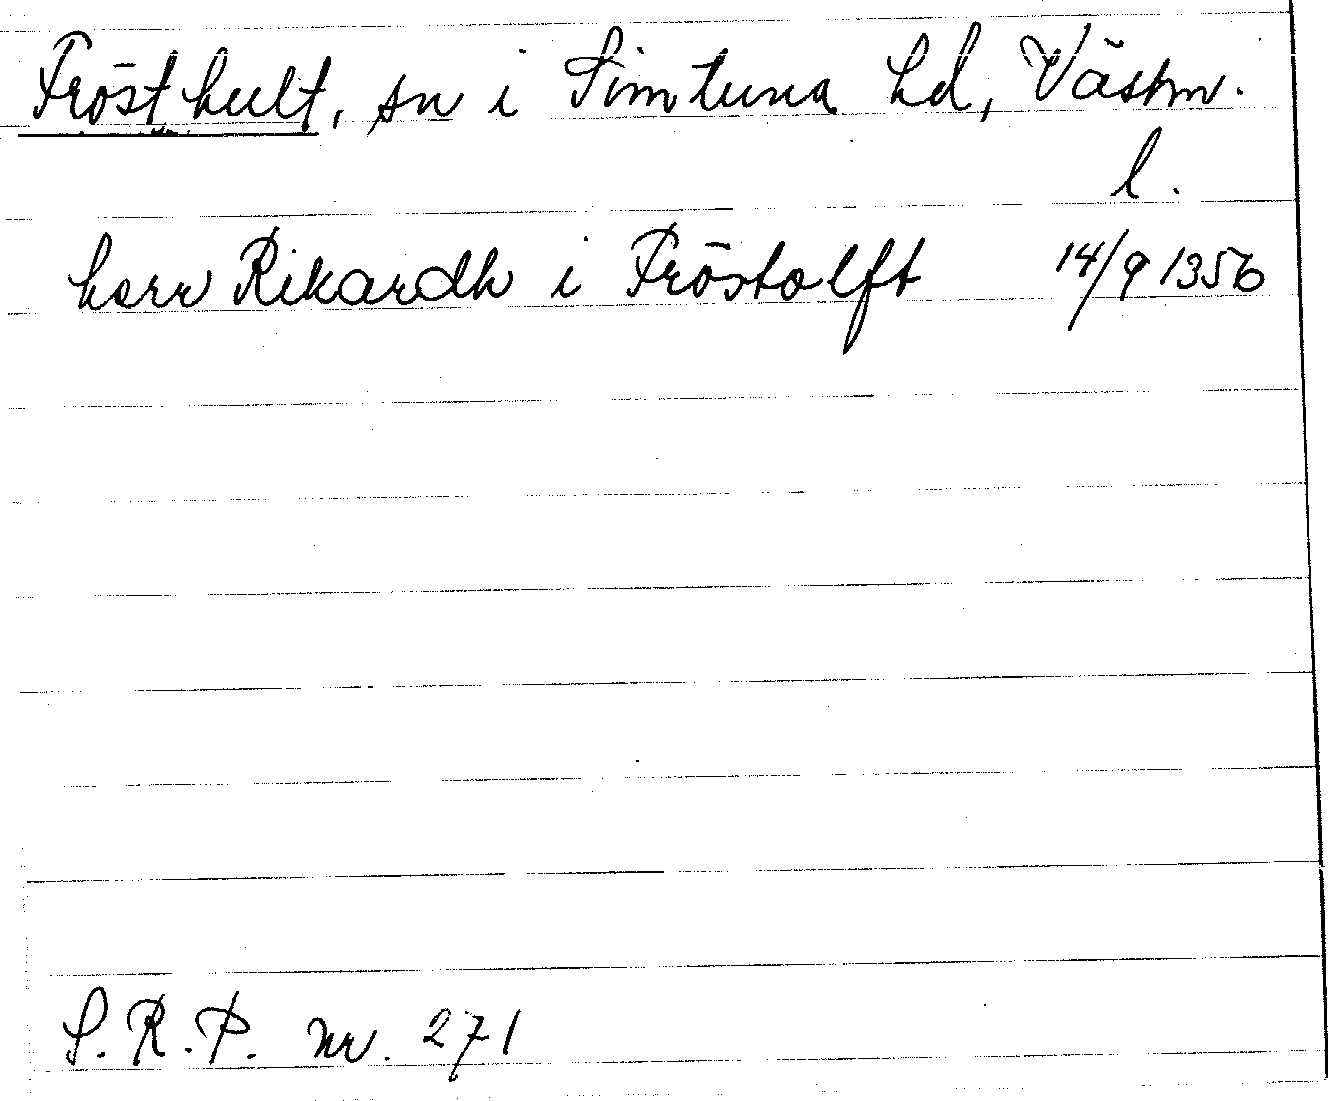 Frösthult, sn i Simtuna hd, Västm.
l.
herr Rikardh i Fröstolft 14/9 1356
S.R.P. nr. 271